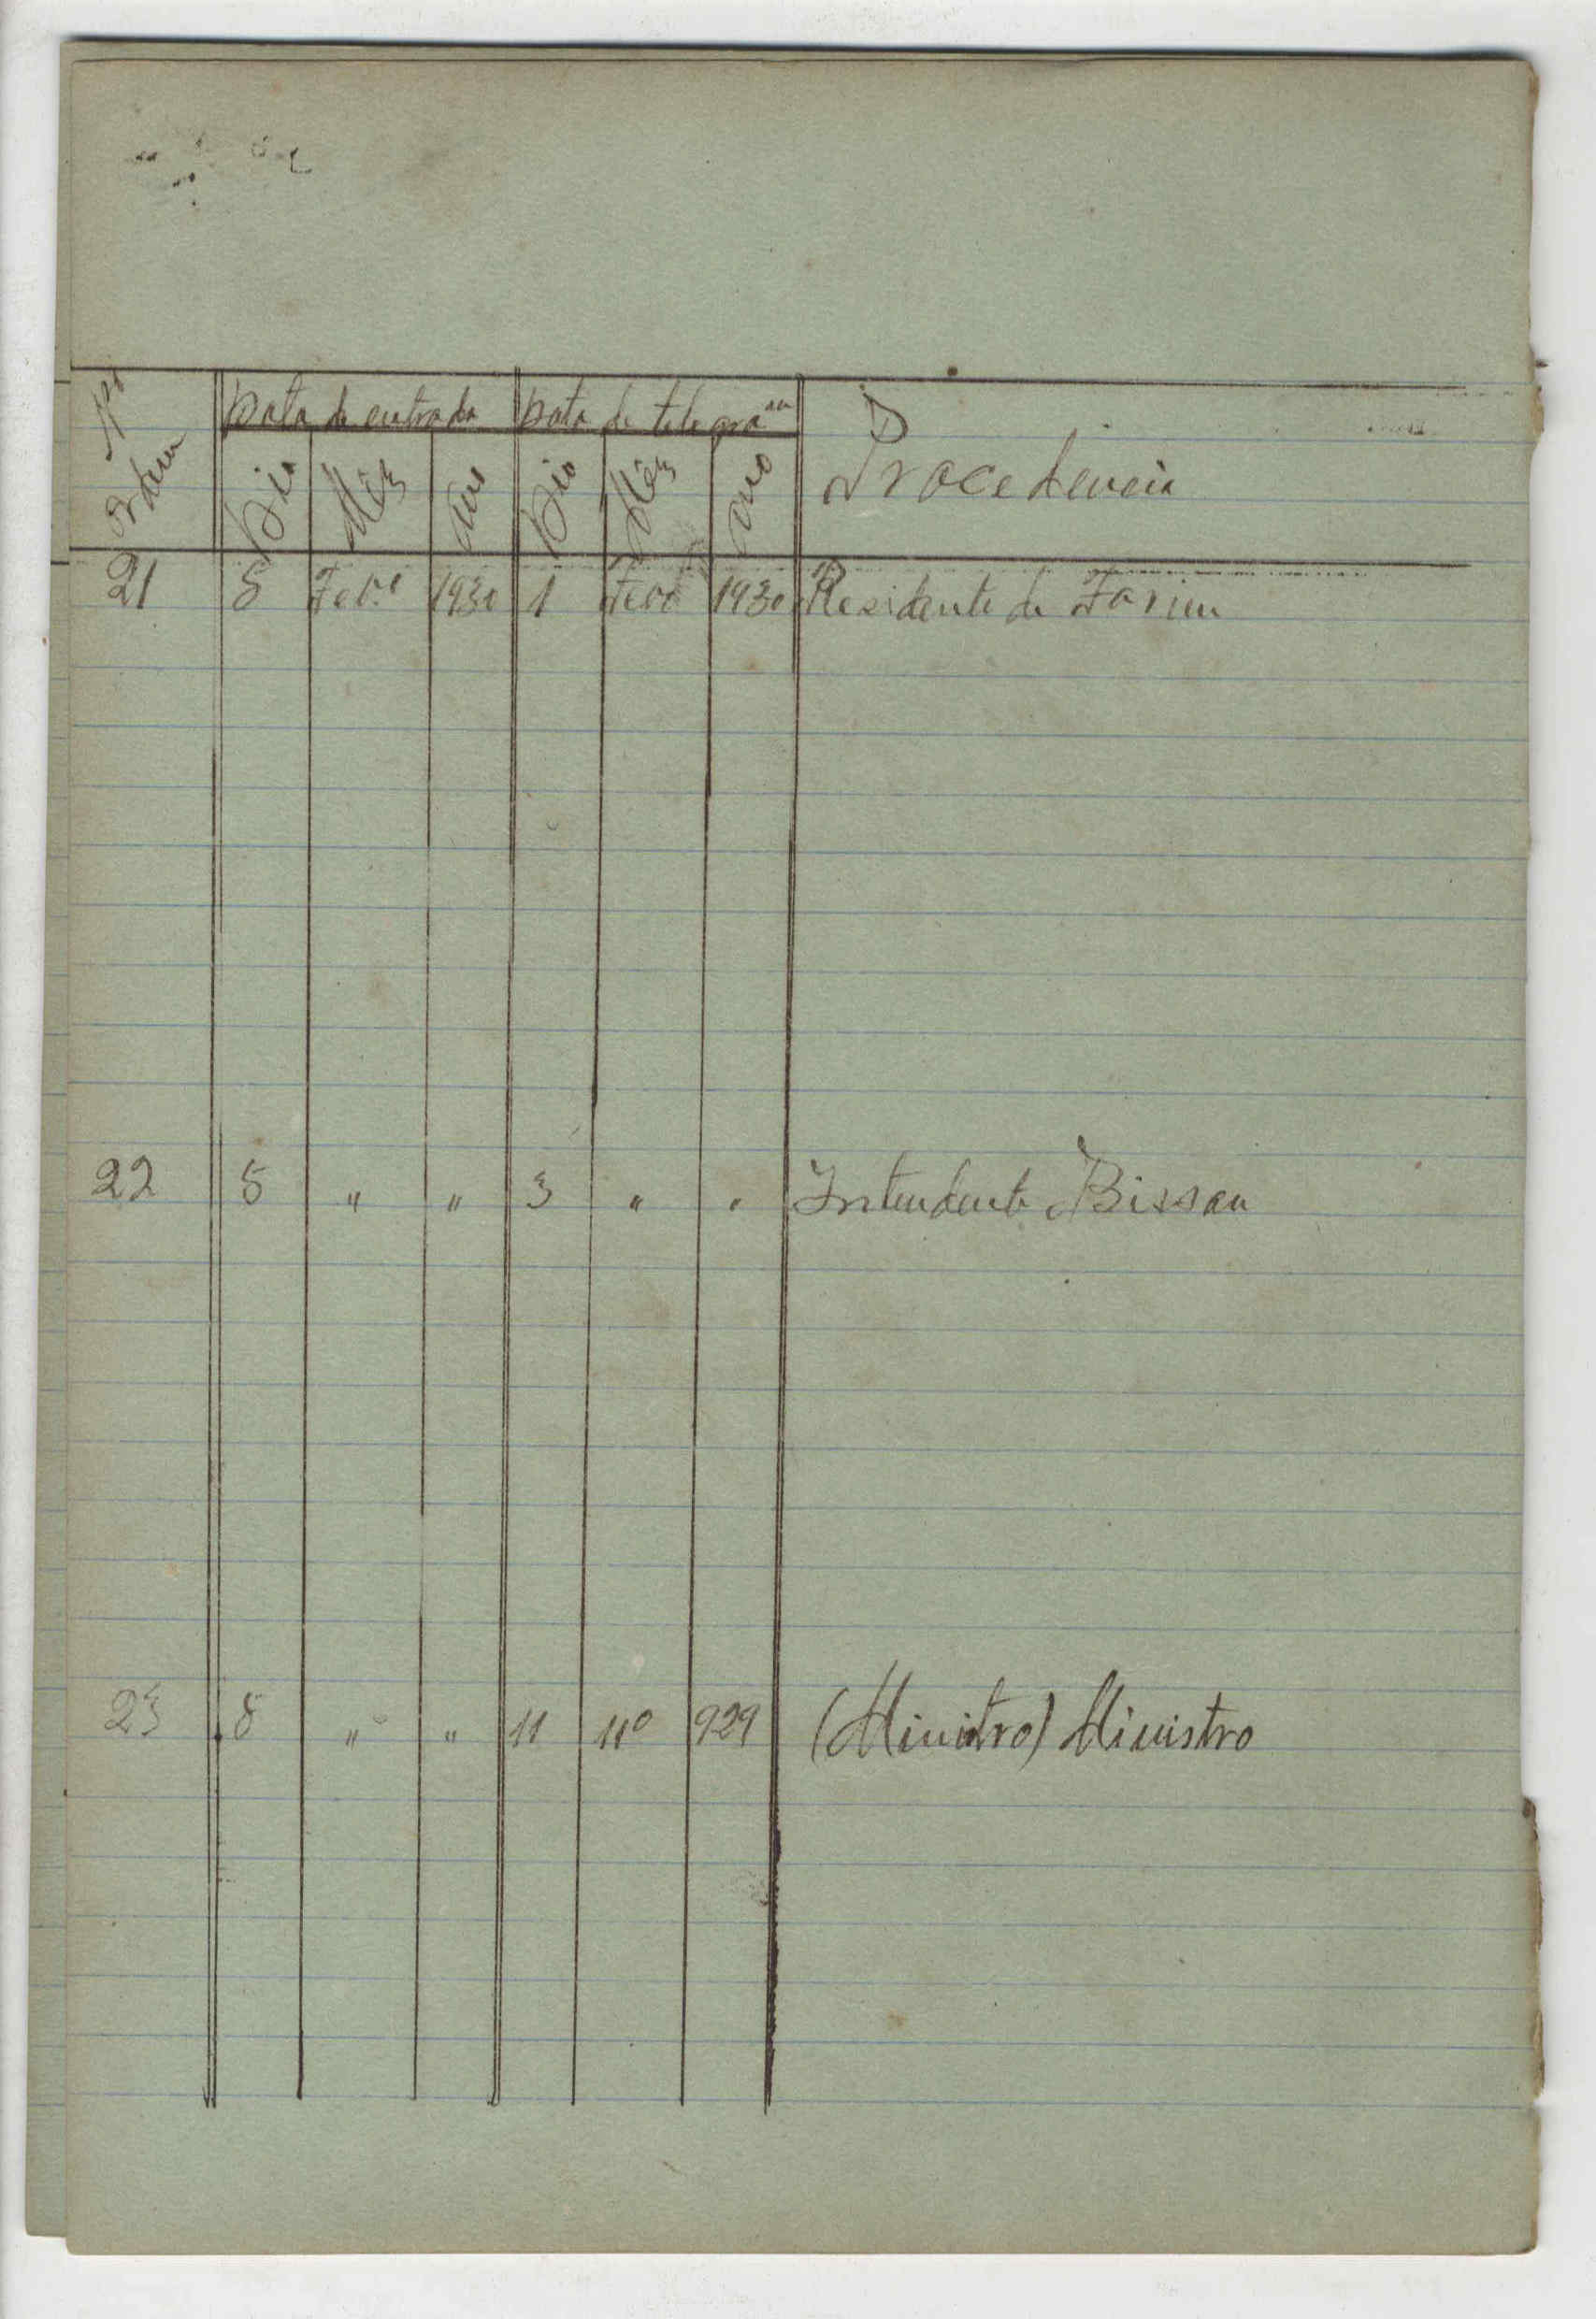 Nº Ordem | Data de entrada | Data de telegraᵐᵃ | Procedencia
Dia | Mêz | Ano | Dia | Mêz | Ano
21 | 5 | Fevº | 1930 | 1 | Fevº | 1930 | Residente de Farim
22 | 5 | " | " | 3 | " | " | Intendente Bissau
23 | 8 | " | " | 11 | 11º | 929 | (Ministro) Ministro